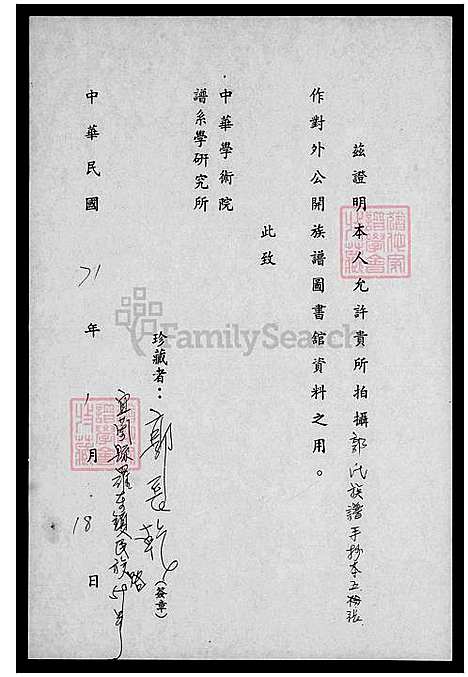 茲證明本人允許貴所拍攝郭氏族譜手抄本五張
作對外公開族譜圖書館資料之用。
此致
中華學術院
譜系學研究所
珍藏者：郭（簽章）
宜蘭縣羅東鎮民族路
中華民國71年1月18日
FamilySearch